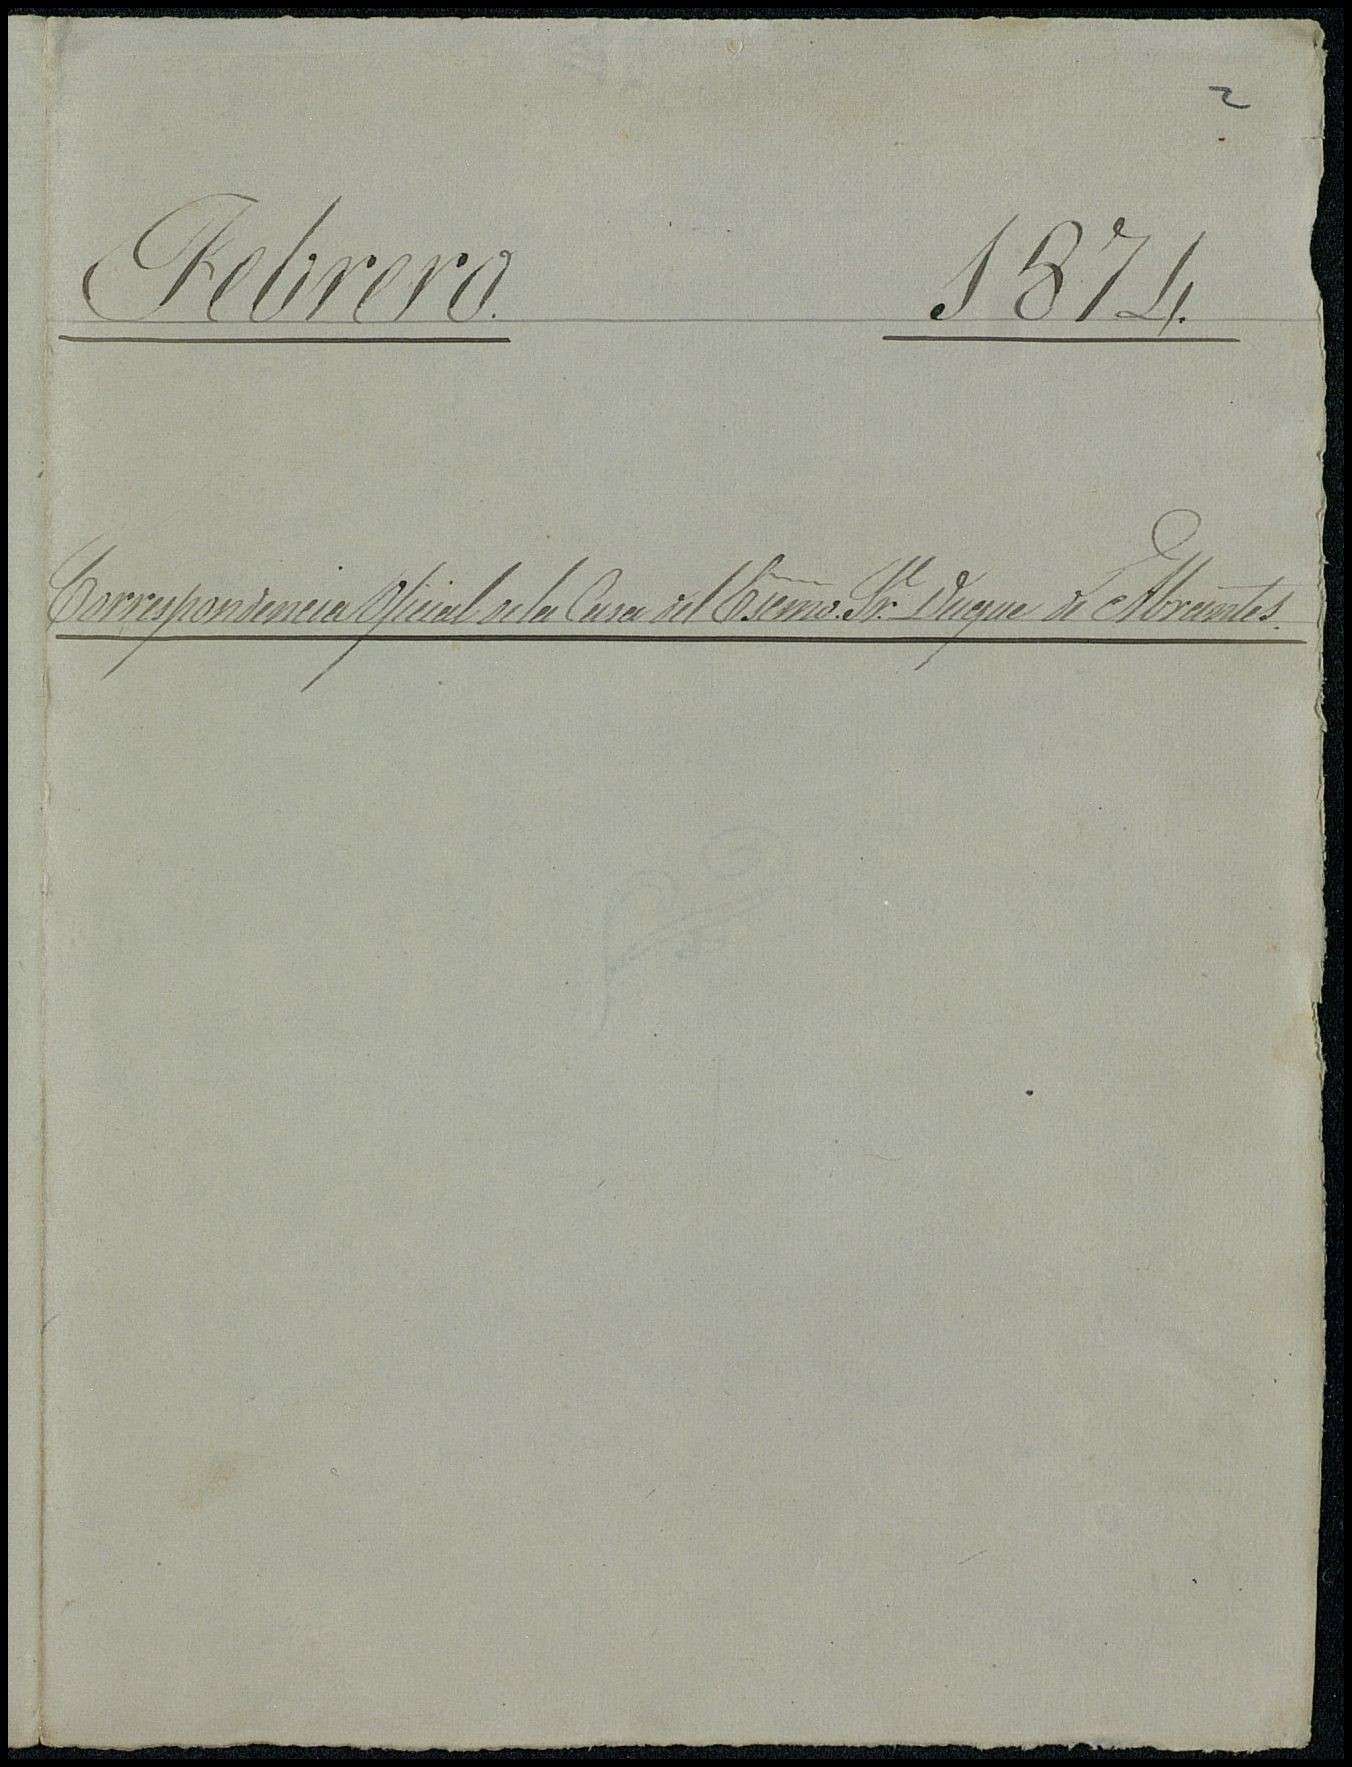 2
Febrero. 1874.
Correspondencia Oficial de la Casa del Excmo. Sr. Duque de Abrantes.